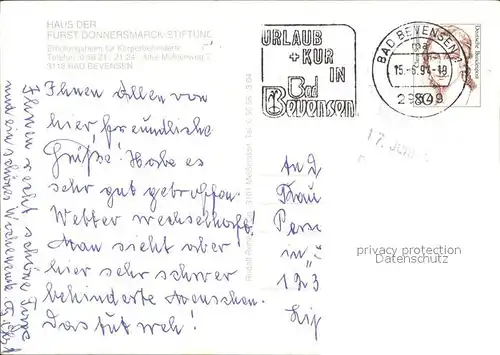 HAUS DER
FÜRST DONNERSMARCK-STIFTUNG
Erholungsheim für Körperbehinderte
Telefon 0 58 21 - 21 24 Alte Mühlenweg 7
3118 BAD BEVENSEN
URLAUB
+ KUR
IN
Bad
Bevensen
BAD BEVENSEN
15.-6.94-18
29549
Deutsche Bundespost
80
17. Juni
Ihnen Allen von
hier, freundliche
Grüße! Habe es
sehr gut getroffen
Wetter wechselhaft!
Man sieht aber
hier sehr schwer
behinderte Menschen.
Das tut weh!
Ihnen schöne
und ein schönes Wochenende
And
Frau
in
123
privacy protection
Datenschutz